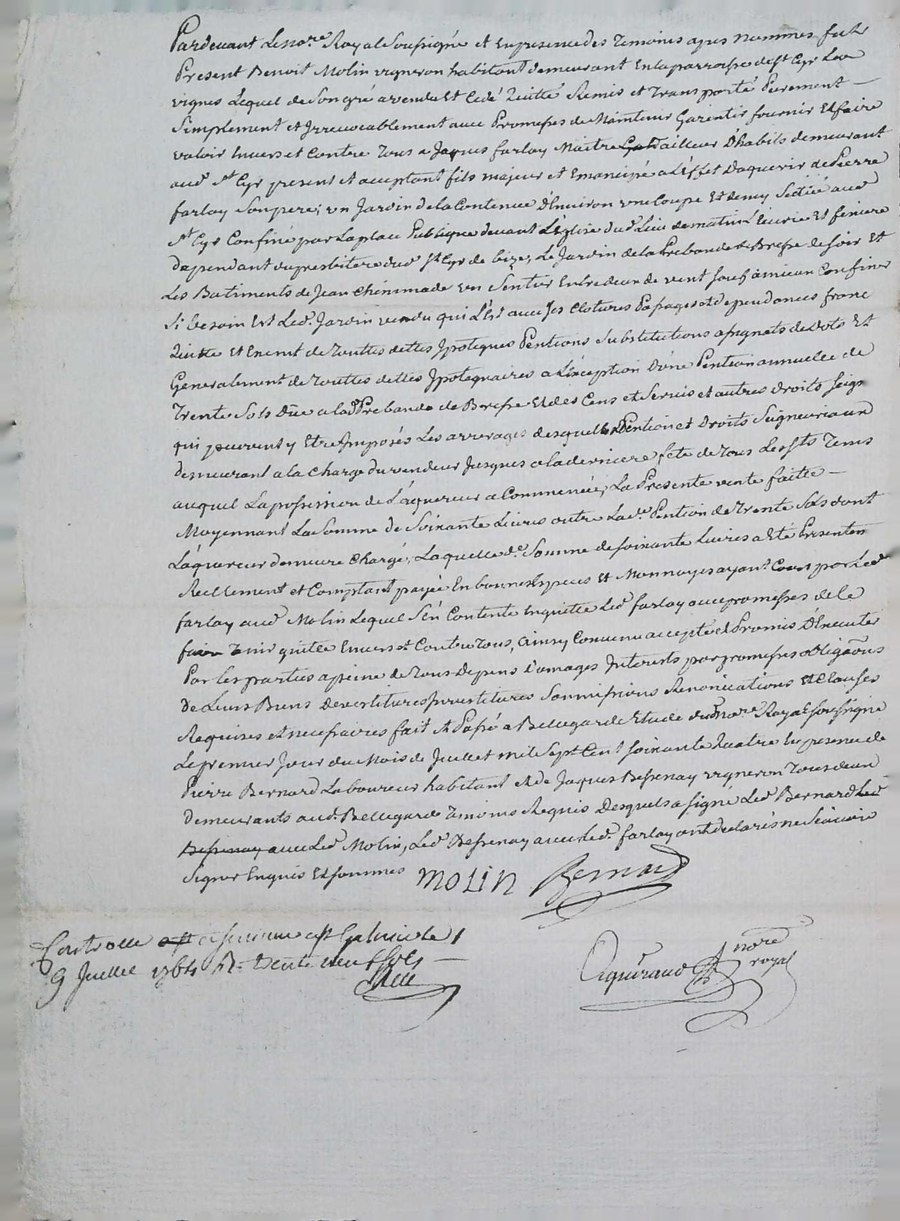 Pardevant Le no.re Royal Soussigné et En presence des Temoins apres Nommes fut
Present Benoit Molin vigneron habitant demeurant En la parroisse de St Cyr Les
vignes Lequel de Son gré a vendu Et Cedé Quitté Remis et Transporté Purement
Simplement et Irrevocablement avec Promesses de Maintenir Garentir fournir Et faire
valoir Envers et Contre Tous a Jaques farlay Maitre Tailleur D'habits demeurant
aud. St Cyr present et acceptant fils majeur et Emancipé a L'Effet D'aquerir de Pierre
farlay Son pere; un Jardin de la Contenue D'Environ une Coupe Et demy Scitué aud.
St Cyr Confiné par La place Publique devant L'Eglise dud. Lieu de matin L'ecurie Et feniere
dependant du presbitere dud. St Cyr de bize, Le Jardin de la Prebande de Bresse de Soir Et
Les Batiments de Jean Chenimade un Sentier Entredeux de vent Sauf a mieux Confiner
Si besoin Est Led. Jardin vendu quitte avec Ses Clotures Passages et dependances franc
Quitte Et Exempt de Touttes dettes Ypoteques Pentions Substitutions assignats de Dots Et
Generalement de Touttes dettes Ypotequaires a L'exception D'une Pention annuelle de
Trente Sols Düe a lad. Prebande de Bresse Et des Cens et Servis et autres Droits Seigx
qui peuvent y Etre Imposés Les arrerages desquels Pention et Droits Seigneuriaux
demeurant a la Charge du vendeur Jusques a la derniere fete de Tous Les Sts Tems
auquel La possession de L'aquereur a Commencée, La Presente vente faitte
Moyennant La Somme de Soixante Livres outre Lad. Pention de Trente Sols dont
L'aquereur demeure Chargé, Laquelle d. Somme de Soixante Livres a Eté Presentem
Reellement et Comptant payée En bonnes Especes Et Monnoyes ayant Cours par Led.
farlay aud. Molin Lequel S'en Contente En quitte Led. farlay avec promesses de Le
faire Tenir quitte Envers et Contre Tous, Ainsy Convenu accepté et Promis D'Executer
Par Les parties a peine de Tous Depens Domages Interests par promesses obligaons
de Leurs Biens Devestitures Investitures Soumissions Renonciations Et Clauses
Requises et necessaires fait Et Passé a Bellegarde Etude dud. no.re Royal Soussigné
Le premier Jour du Mois de Juillet mil Sept Cent Soixante Quatre En presence de
Pierre Bernard Laboureur habitant Et de Jaques Bessenay vigneron Tous deux
demeurants aud. Bellegarde Temoins Requis Desquels a Signé Led. Bernard
Bessenay avec Led. Molin, Led. Bessenay avec Led. farlay ont declarés ne Scavoir
Signer Enquis Et Sommes MOLIN Bernard
Controllé a St Galmier le
9 Juillet 1764 R. trente neuf sols
nore
royal